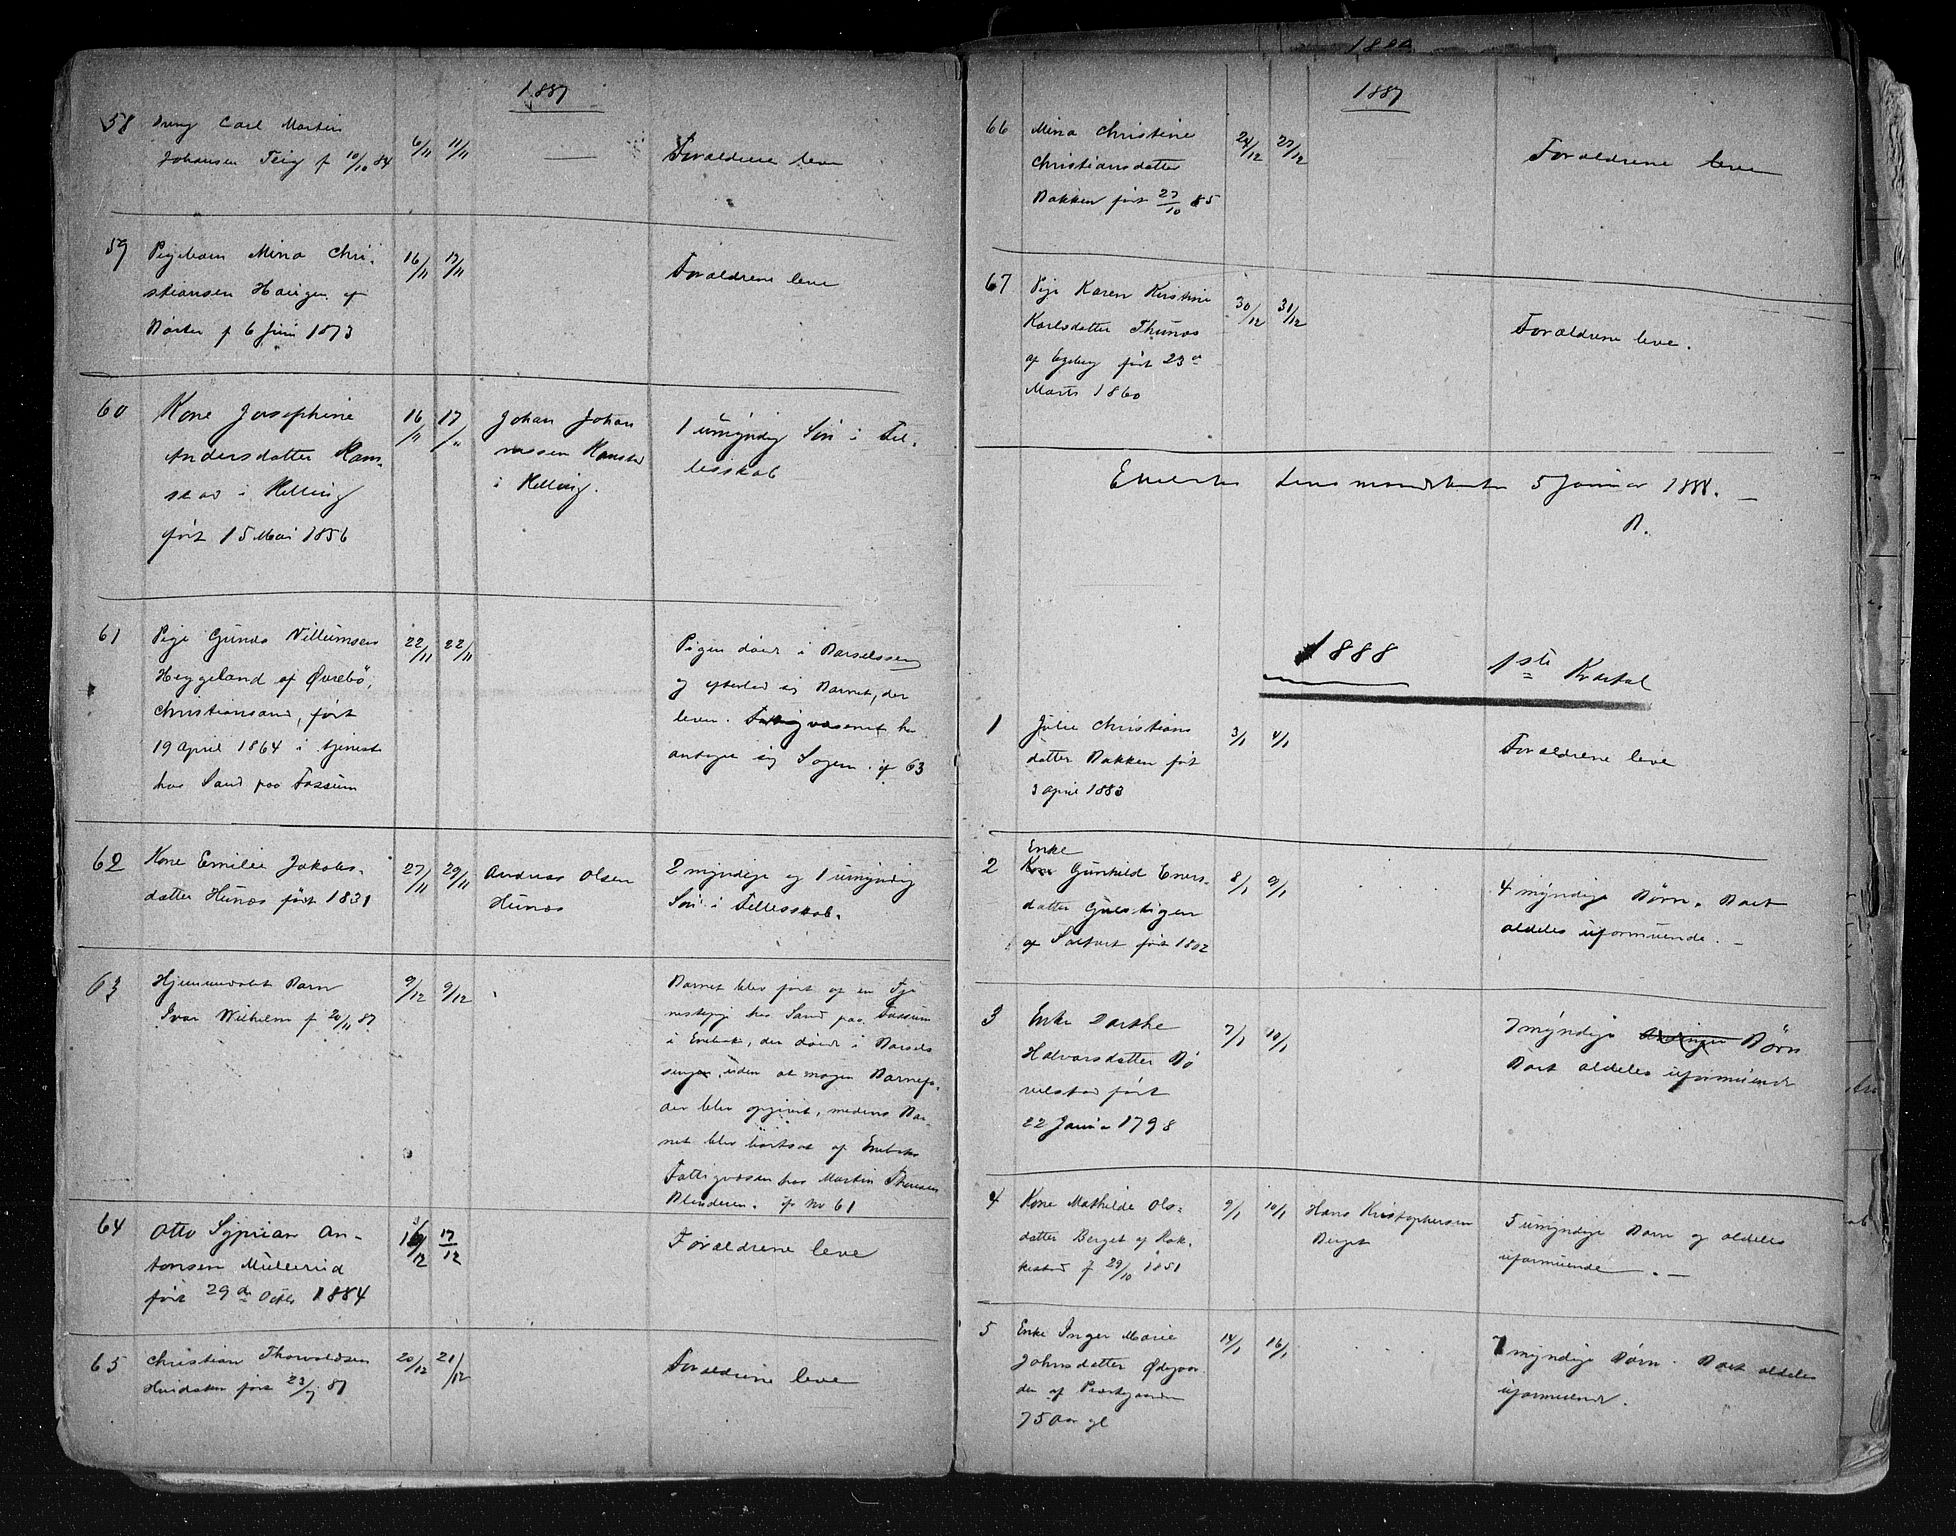 1887
58 Dreng Carl Martin 6/11 11/11
Johansen Teig f 10/10 84 — Forældrene leve
59 Pigebarn Mina Chri- 16/11 17/11
stiansen Haugen af Forældrene leve
Børter f 6 Juni 1873
60 Kone Josephine 16/11 17/11 Johan Johan 1 umyndig Søn i Fel-
Andersdatter Ram- nessen Ramstad lesskab
stad i Kelling i Kelling.
født 15 Mai 1856
61 Pige Gunda Villumsen 22/11 22/11 Pigen døde i Barselsseng
Heggeland af Øvrebö, og efterlod sig Barnet, der
Christiansand, født lever. Fattigvæsenet har
19 April 1864 i tjeneste antaget sig Sagen. cf 63
hos Sand paa Fossum
62 Kone Emilie Jakobs- 27/11 29/11 Andreas Olsen 2 myndige og 1 umyndig
datter Hunæs født 1831 Hunæs Søn i Fellesskab.
63 Hjemmedøbt Barn 9/12 9/12 Barnet blev født af en Tje
Ivar Wilhelm f 20/11 87 nestepige hos Sand paa Fossum
i Enebak, der døde i Barsels
sengen, uden at nogen Barnefa-
der blev opgivet, medens Bar-
net blev bortsat af Enebaks
Fattigvæsen hos Martin
cf No 61
64 Otto Syprian An- 17/12
tonsen Mullerud Forældrene leve
født 29de Octbr 1884
65 Christian Thorvaldsen 20/12 21/12 Forældrene leve
født 87
1887
66 Mina Christine 24/12 27/12
Christiansdatter Forældrene leve
Bakken født 27/10 85
67 Pige Karen Kristine 30/12 31/12
Karlsdatter Thunæs Forældrene leve.
af født 23de
Marts 1860
Enebaks Lensmandskontor 5 Januar 1888. —
B.
1888 1ste Kvartal
1 Julie Christians 3/1 4/1
datter Bakken født Forældrene leve
3 April 1883
Enke
2 Kone Gunhild Eners- 8/1 9/1 4 myndige Børn. Boet
datter Gulstigen aldeles uformuende. —
født 1802
3 Enke Dorthe 7/1 10/1 7 myndige Børn
Halvorsdatter Bø Boet aldeles uformuende
velstad født
22 Januar 1798
4 Kone Mathilde Ols- 9/1 10/1 Hans Kristophersen 5 umyndige Børn og aldeles
datter Berget af Rak- Berget uformuende. —
kestad f 29/10 1851
5 Enke Inger Marie 14/1 16/1 7 myndige Børn. Boet aldeles
Johnsdatter Ødegaar uformuende.
den af Præstegaarden
75 Aar gl